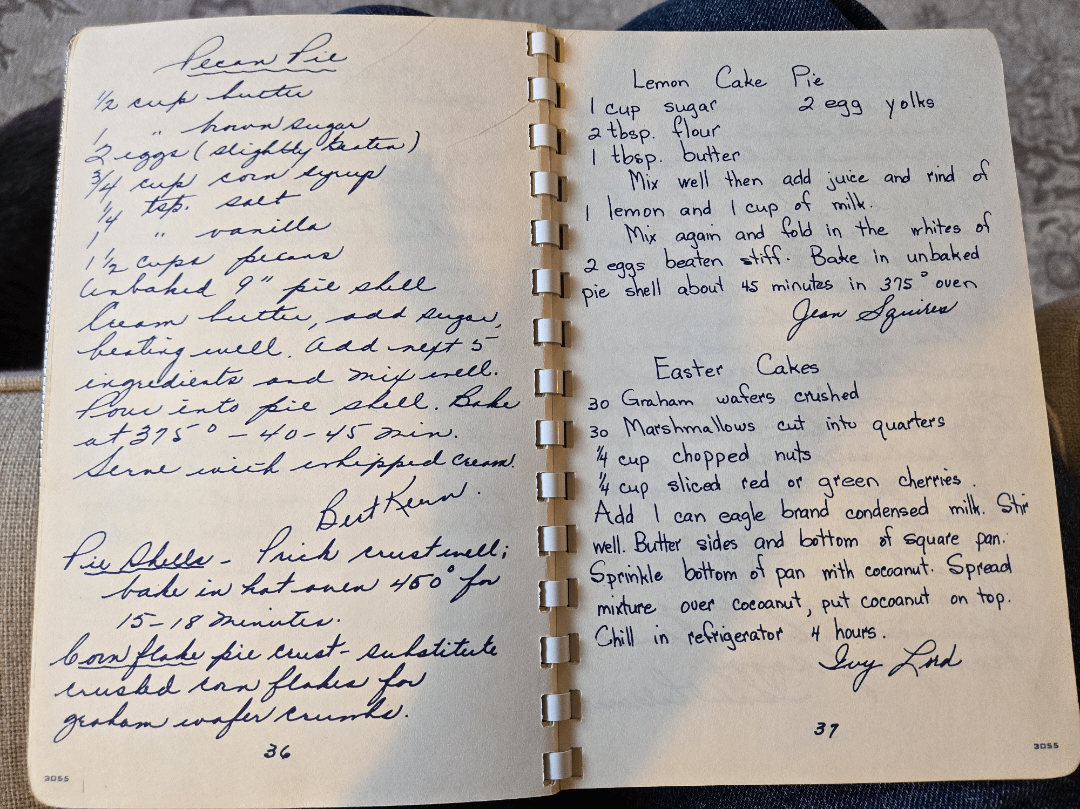 Pecan Pie
1/2 cup butter
1 " brown sugar
2 eggs (slightly beaten)
3/4 cup corn syrup
1/4 tsp. salt
1 " vanilla
1 1/2 cups pecans
Unbaked 9" pie shell
Cream butter, add sugar,
beating well. Add next 5
ingredients and mix well.
Pour into pie shell. Bake
at 375° - 40-45 min.
Serve with whipped cream.
Bert Kern.
Pie Shells - Prick crust well;
bake in hot oven 450° for
15-18 minutes.
Corn flake pie crust - substitute
crushed corn flakes for
graham wafer crumbs.
36
3055
Lemon Cake Pie
1 cup sugar 2 egg yolks
2 tbsp. flour
1 tbsp. butter
Mix well then add juice and rind of
1 lemon and 1 cup of milk.
Mix again and fold in the whites of
2 eggs beaten stiff. Bake in unbaked
pie shell about 45 minutes in 375° oven
Jean Squires
Easter Cakes
30 Graham wafers crushed
30 Marshmallows cut into quarters
1/4 cup chopped nuts
1/4 cup sliced red or green cherries.
Add 1 can eagle brand condensed milk. Stir
well. Butter sides and bottom of square pan.
Sprinkle bottom of pan with cocoanut. Spread
mixture over cocoanut, put cocoanut on top.
Chill in refrigerator 4 hours.
Ivy Lord
37
3055